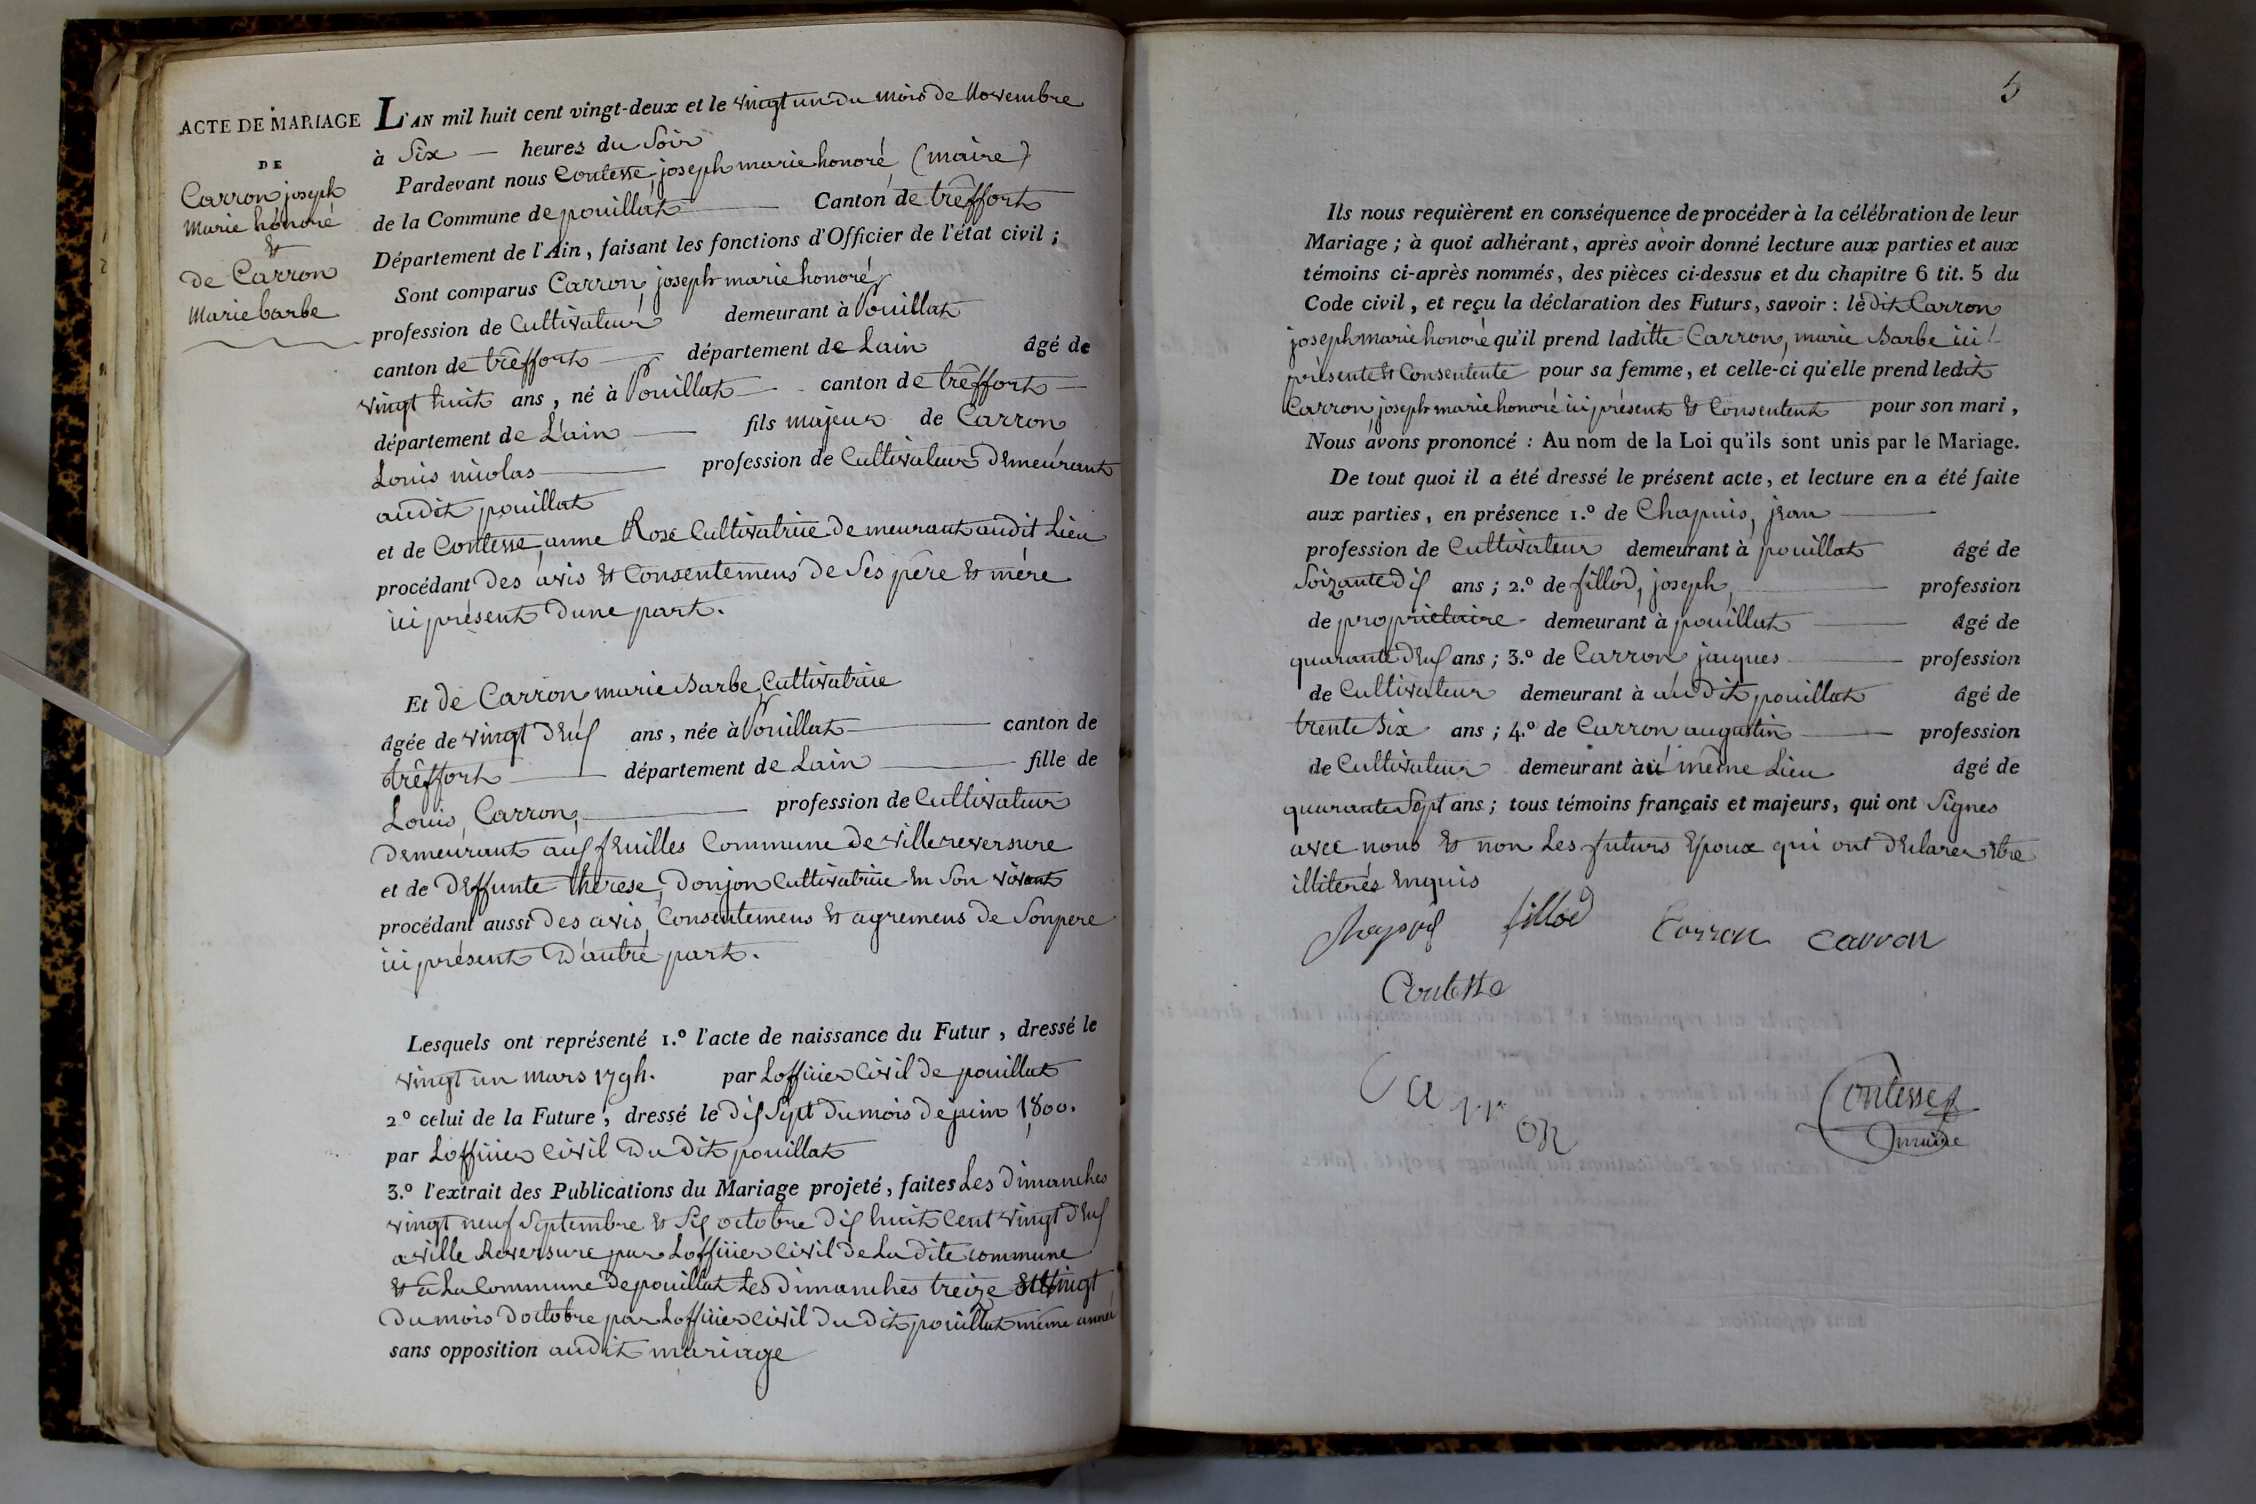 ACTE DE MARIAGE
DE
Carron joseph
Marie honoré
&
de Carron
Marie barbe
L'AN mil huit cent vingt-deux et le vingt un du mois de Novembre
à Six — heures du Soir
Pardevant nous Contesse, joseph marie honoré (maire)
de la Commune de pouillat Canton de trêffort
Département de l'Ain, faisant les fonctions d'Officier de l'état civil ;
Sont comparus Carron, joseph marie honoré
profession de Cultivateur demeurant à Pouillat
canton de trêffort département de Lain âgé de
vingt huit ans, né à Pouillat canton de trêffort
département de L'ain fils majeur de Carron
Louis nicolas profession de Cultivateur demeurant
audit pouillat
et de Contesse, anne Rose Cultivatrice demeurant audit Lieu
procédant des avis & Consentemens de Ses père & mère
ici présent dune part.
Et de Carron marie Barbe, Cultivatrice
âgée de vingt deux ans, née à Pouillat canton de
trêffort département de Lain fille de
Louis, Carron, profession de Cultivateur
demeurant aux feuilles Commune de villereversure
et de deffunte thérese, Donjon Cultivatrice en Son vivant
procédant aussi des avis, Consentemens & agremens de Son pere
ici présent d'autre part.
Lesquels ont représenté 1.º l'acte de naissance du Futur, dressé le
vingt un mars 1794. par Lofficier Civil de pouillat
2.º celui de la Future, dressé le dix Sept du mois de juin 1800.
par Lofficier Civil du dit pouillat
3.º l'extrait des Publications du Mariage projeté, faites Les dimanches
vingt neuf Septembre & Six octobre dix huit Cent vingt deux
a ville Reversure par Lofficier Civil de La dite commune
& à La Commune de pouillat Les dimanches treize & vingt
du mois doctobre par Lofficier Civil du dit pouillat même année
sans opposition audit mariage
5
Ils nous requièrent en conséquence de procéder à la célébration de leur
Mariage ; à quoi adhérant, après avoir donné lecture aux parties et aux
témoins ci-après nommés, des pièces ci-dessus et du chapitre 6 tit. 5 du
Code civil, et reçu la déclaration des Futurs, savoir : le dit Carron
joseph marie honoré qu'il prend laditte Carron, marie Barbe ici
présente & Consentente pour sa femme, et celle-ci qu'elle prend ledit
Carron, joseph marie honoré ici présent & Consentent pour son mari,
Nous avons prononcé : Au nom de la Loi qu'ils sont unis par le Mariage.
De tout quoi il a été dressé le présent acte, et lecture en a été faite
aux parties, en présence 1.º de Chapuis, jean
profession de Cultivateur demeurant à pouillat âgé de
Soixante dix ans ; 2.º de fillod, joseph, profession
de propriétaire demeurant à pouillat âgé de
quarante deux ans ; 3.º de Carron jacques profession
de Cultivateur demeurant à audit pouillat âgé de
trente Six ans ; 4.º de Carron augustin profession
de Cultivateur demeurant àu même Lieu âgé de
quarante Sept ans ; tous témoins français et majeurs, qui ont Signes
avec nous & non Les futurs Epoux qui ont declarer être
illiterés Enquis
Chapuis fillod Carron Carron
Contesse
Carron
Contesse
maire